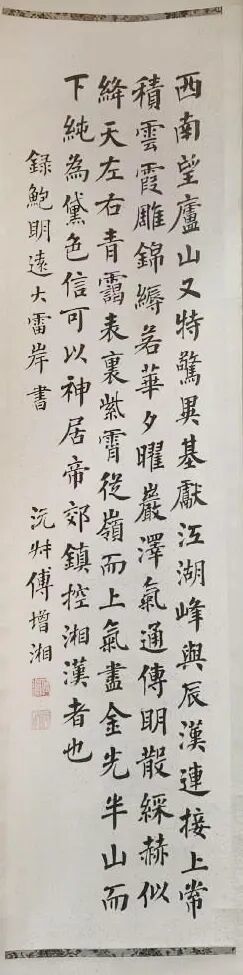 西南望廬山又特驚異基獻江湖峰與辰漢連接上常
積雲霞雕錦縟若華夕曜巖澤氣通傳明散綵赫似
絳天左右青靄表裏紫霄從嶺而上氣盡金光半山而
下純為黛色信可以神居帝郊鎮控湘漢者也
錄鮑明遠大雷岸書
沅叔傅增湘